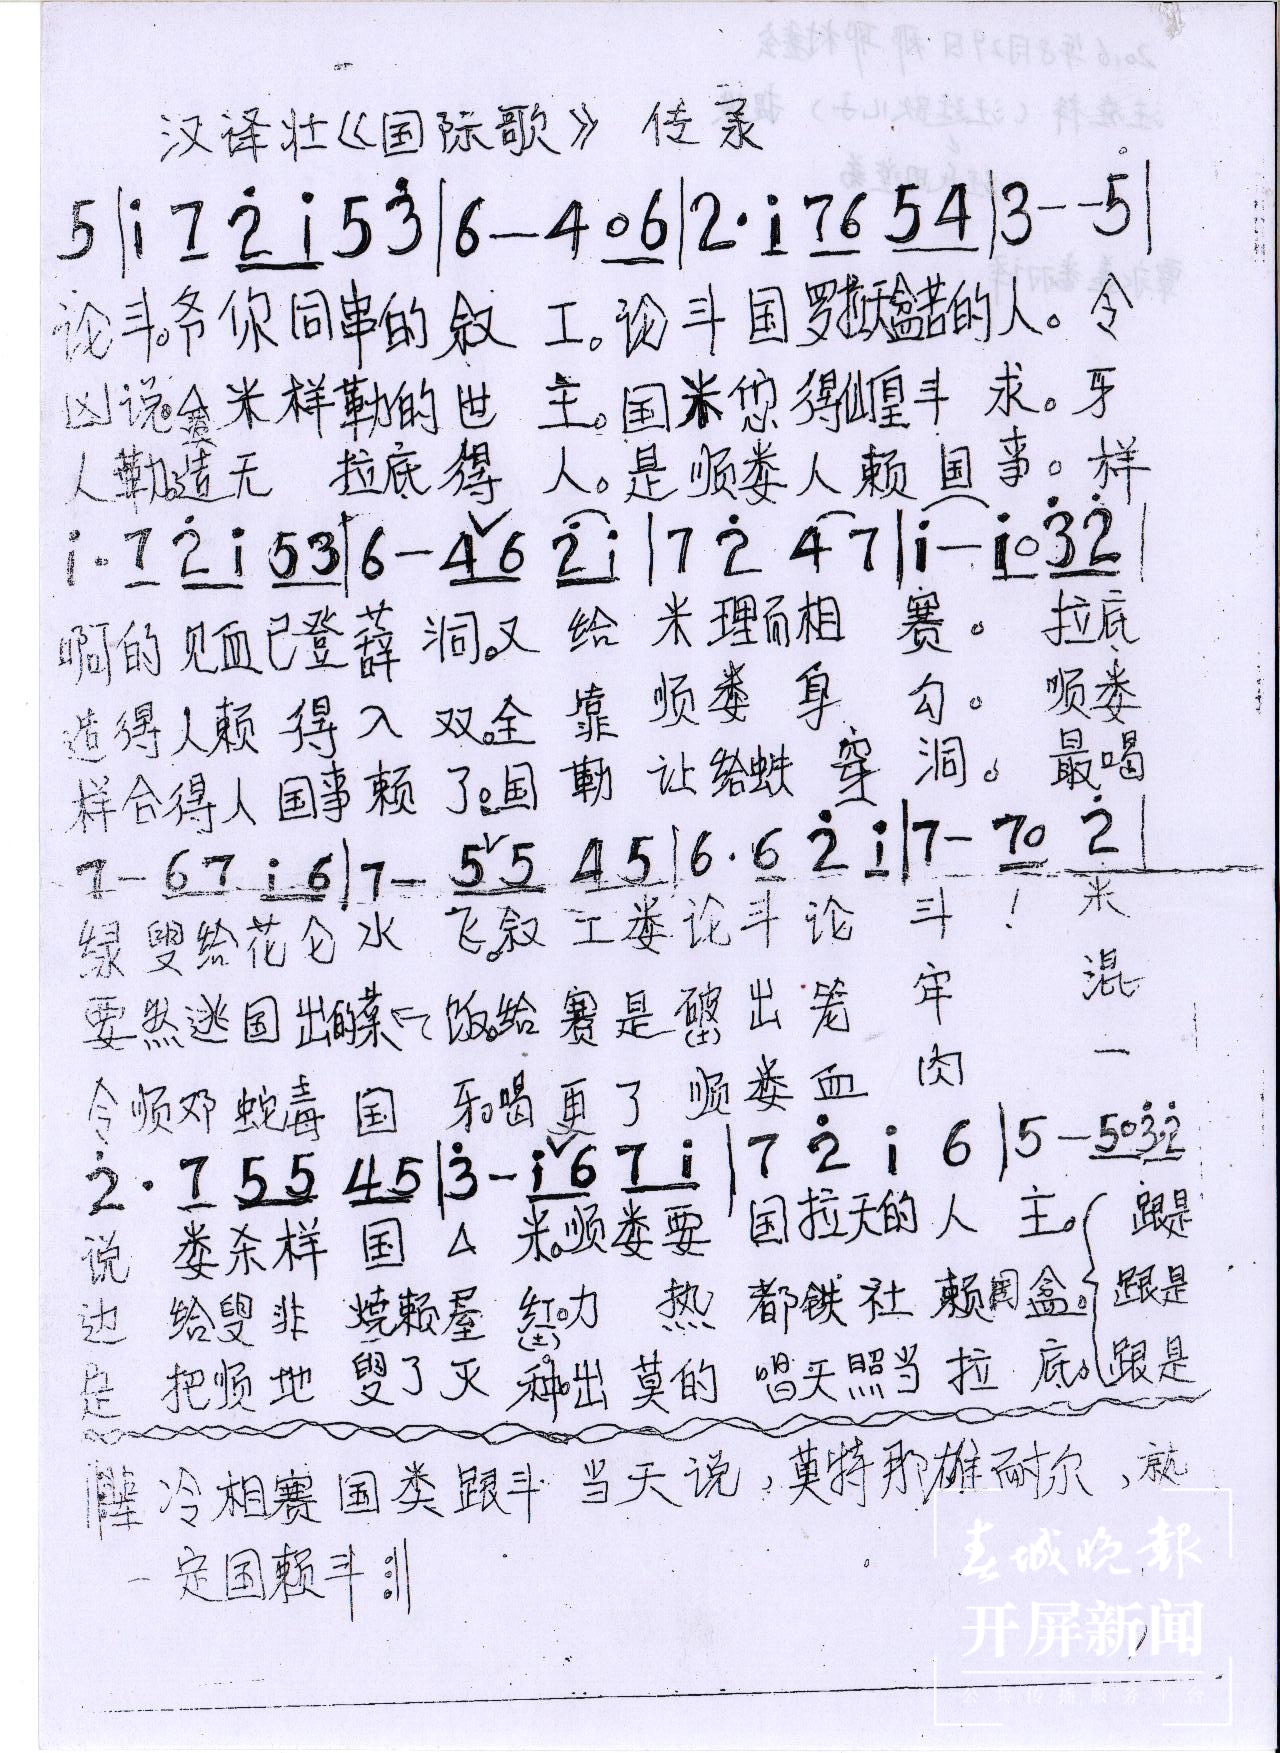 汉译壮《国际歌》 传录
5|i 7 2̇ i 5 3̇|6—4 0 6|2·i 7 6 5 4|3--5|
论斗。爷你同串的叙 工。论斗国罗拉天盒苦的人。令
凶说。 米样勒的世 主。国米您得 皇斗 求。牙
人勒。造无 拉底得 人。是顺娄人赖国事。样
i·7 2̇ i 5 3|6—4 6 2̇ i|7 2̇ 4 7|i—i 0 3̇ 2̇|
啊的见血已登薛洞。又给米理而相 赛。拉底
造得人赖得入双。全靠顺娄身 勾。顺娄
样合得人国事赖了。国勒让给蛛穿洞。最喝
7—6 7 i 6|7—5 5 4 5|6·6 2̇ i|7—7 0 2̇|
绿叟给花仑水 飞。叙工娄论斗论 斗！米
要然逃国出的菜 饭。给赛是破出笼 牢 混
(土)
令顺邓蛇毒国 牙。喝更了顺娄血 肉 一
2̇·7 5 5 4 5|3̇—i 6 7 i|7 2̇ i 6|5—5 0 3̇ 2̇
说 娄杀样国 米。顺娄要国拉天的人主。 跟是
边 给叟非烧赖屋红。力热都铁社赖国盒。 跟是
(土)
是 把顺地叟了灭种。出莫的唱天照当拉底。 跟是
冷相赛国类跟斗当天说，莫特那雄耐尔，就
一定国赖斗:||
春城晚报
开屏新闻